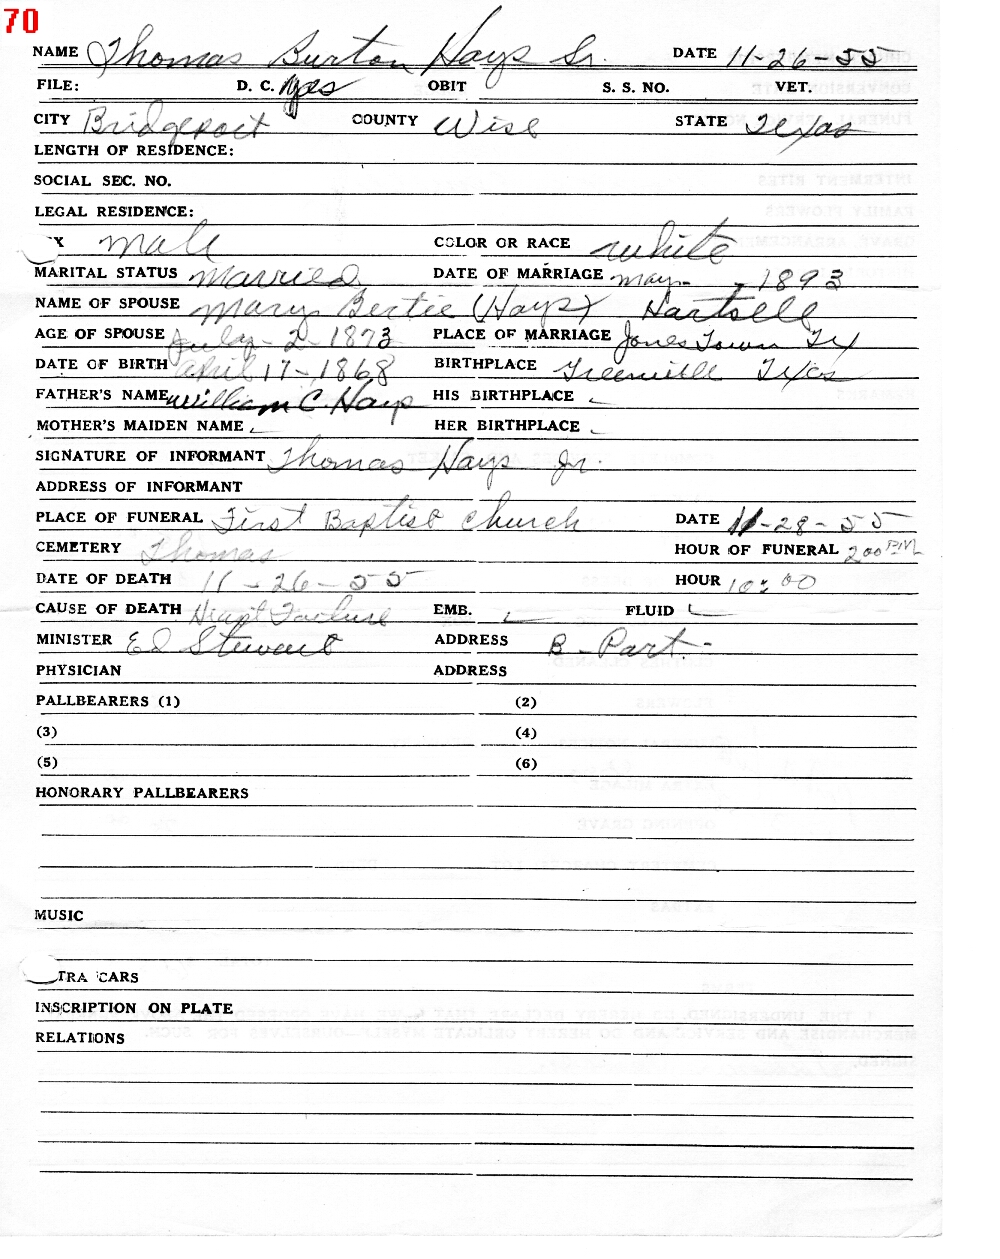 70
NAME Thomas Burton Hays Sr. DATE 11-26-55
FILE: D. C. yes OBIT S. S. NO. VET.
CITY Bridgeport COUNTY Wise STATE Texas
LENGTH OF RESIDENCE:
SOCIAL SEC. NO.
LEGAL RESIDENCE:
X male COLOR OR RACE white
MARITAL STATUS married DATE OF MARRIAGE may - 1893
NAME OF SPOUSE Mary Bertie (Hays) Hartsell
AGE OF SPOUSE July-2-1873 PLACE OF MARRIAGE Jones Town Tex
DATE OF BIRTH April 17-1868 BIRTHPLACE Greenville Texas
FATHER'S NAME William C. Hays HIS BIRTHPLACE
MOTHER'S MAIDEN NAME HER BIRTHPLACE
SIGNATURE OF INFORMANT Thomas Hays Jr.
ADDRESS OF INFORMANT
PLACE OF FUNERAL First Baptist Church DATE 11-28-55
CEMETERY Thomas HOUR OF FUNERAL 2:00 PM
DATE OF DEATH 11-26-55 HOUR 10:00
CAUSE OF DEATH Heart Failure EMB. FLUID
MINISTER Ed Stewart ADDRESS B-Port-
PHYSICIAN ADDRESS
PALLBEARERS (1) (2)
(3) (4)
(5) (6)
HONORARY PALLBEARERS
MUSIC
TRA CARS
INSCRIPTION ON PLATE
RELATIONS